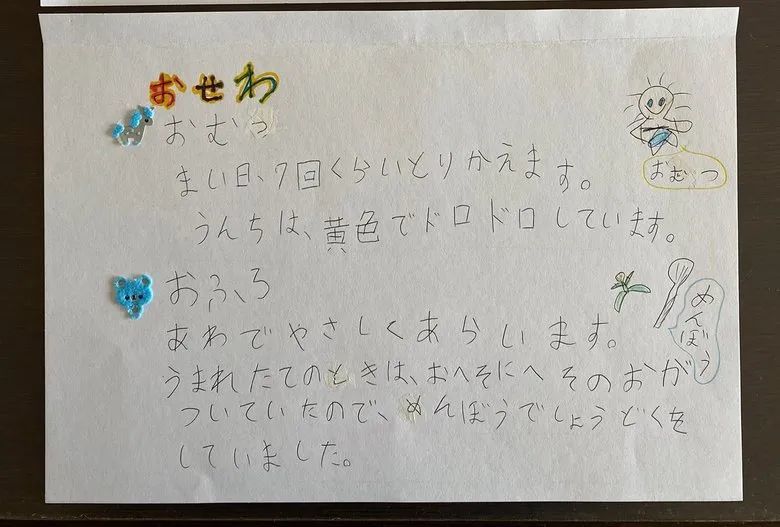 おせわ
おむつ
まい日、7回くらいとりかえます。
おむつ
うんちは、黄色でドロドロしています。
おふろ
めんぼう
あわでやさしくあらいます。
うまれたてのときは、おへそにへそのおが
ついていたので、めんぼうでしょうどくを
していました。